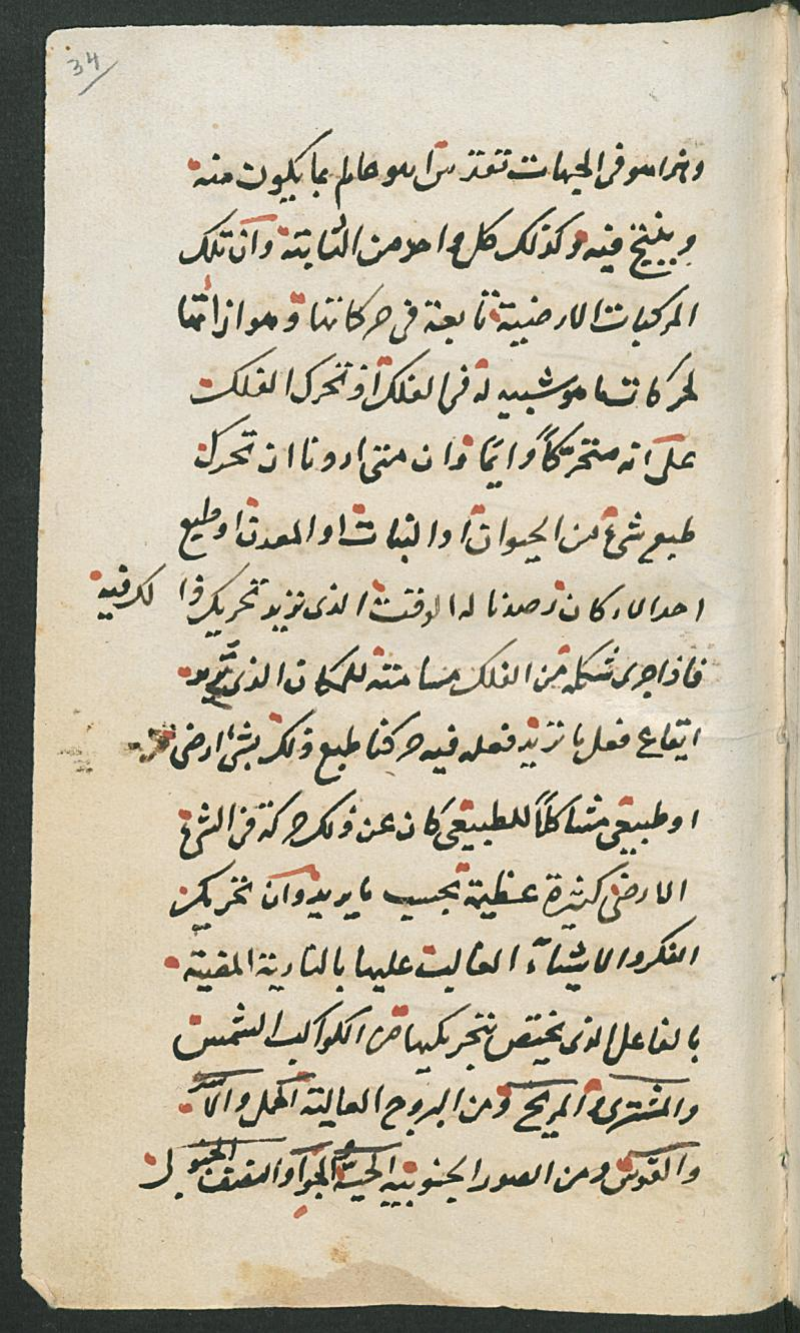 34
في الجهات عالم بما يكون منه
وينتج فيه وكذلك كل واحد من الثابتة وان تلك
المركبات الارضية تابعة في حركاتها وموازاتها
لحركات ما هو شبيه له في الفلك اذ تحرك الفلك
على انه متحركاً دائماً وان متى اردنا ان تحرك
طبع شئ من الحيوان او النبات او المعدن او طبع
احد الاركان رصدنا له الوقت الذى نريد تحريك ذالك فيه
فاذا جرى شكله من الفلك مسامتته للمكان الذى نريد
ايقاع فعل ما نريد فعله فيه حركنا طبع ذلك بشئ ارضى
او طبيعى مشاكلاً للطبيعى كان عن ذلك حركة فى الشئ
الارضى كثيرة عظيمة بحسب ما يريد وان تحريك
الفكر والاشيآء الغالب عليها بالنارية المقيته
بالفاعل الذى يختص بتحريكها من الكواكب الشمس
والمشترى والمريخ ومن البروج العالية الحمل والاسد
والقوس ومن الصور الجنوبية الحية والجوزا والنصف الجنوبى